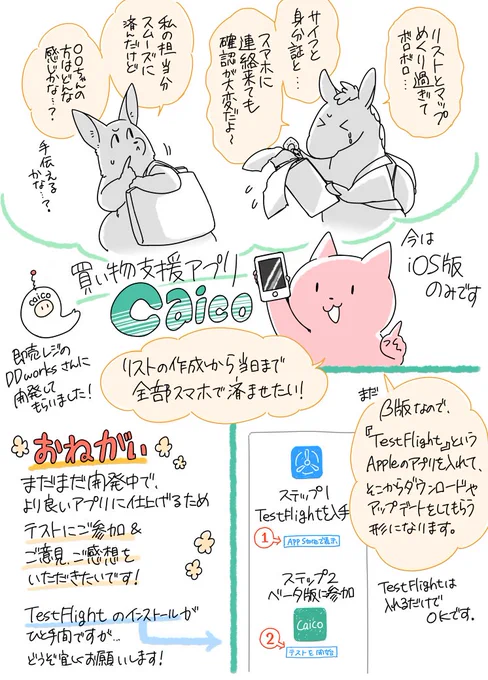 リストとマップ
めくり過ぎて
ボロボロ…
サイフと
身分証と…
スマホに
連絡来ても
確認が大変だよ〜
私の担当分
スムーズに
済んだけど
〇〇ちゃんの
方はどんな
感じかな…?
手伝える
かな…?
買い物支援アプリ
caico
今は
iOS版
のみです
caico
即売レジの
DDworksさんに
開発して
もらいました!
リストの作成から当日まで
全部スマホで済ませたい!
まだ
β版なので、
『TestFlight』という
Appleのアプリを入れて、
そこからダウンロードや
アップデートをしてもらう
形になります。
TestFlightは
入れるだけで
OKです。
おねがい
まだまだ開発中で、
より良いアプリに仕上げるため
テストにご参加&
ご意見、ご感想を
いただきたいです!
TestFlightのインストールが
ひと手間ですが…
どうぞ宜しくお願いします!
ステップ1
TestFlightを入手
1 App Storeで表示
ステップ2
ベータ版に参加
Caico
2 テストを開始